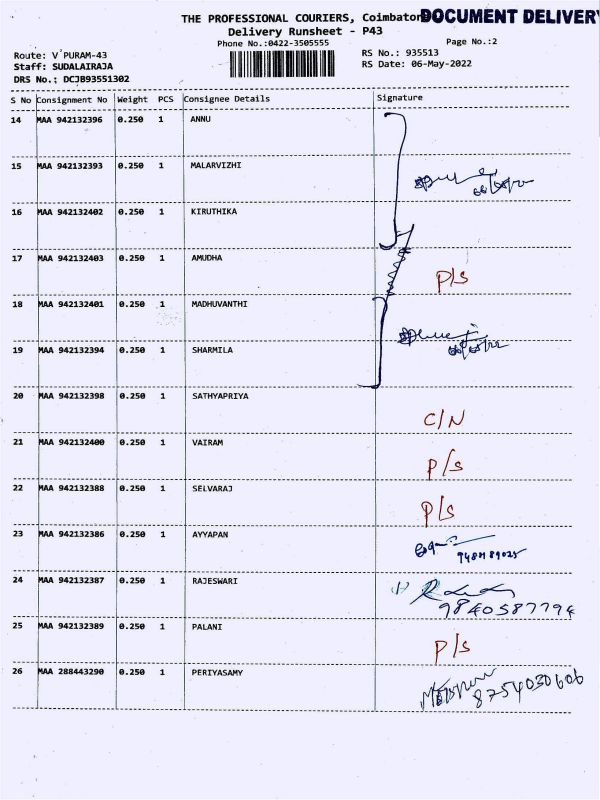 THE PROFESSIONAL COURIERS, Coimbator
DOCUMENT DELIVERY
Delivery Runsheet - P43
Phone No.:0422-3505555
Page No.:2
Route: V'PURAM-43
RS No.: 935513
Staff: SUDALAIRAJA
RS Date: 06-May-2022
DRS No.: DCJB93551302
S No Consignment No Weight PCS Consignee Details Signature
14 MAA 942132396 0.250 1 ANNU
15 MAA 942132393 0.250 1 MALARVIZHI
16 MAA 942132402 0.250 1 KIRUTHIKA
17 MAA 942132403 0.250 1 AMUDHA P/S
18 MAA 942132401 0.250 1 MADHUVANTHI
19 MAA 942132394 0.250 1 SHARMILA
20 MAA 942132398 0.250 1 SATHYAPRIYA C/N
21 MAA 942132400 0.250 1 VAIRAM P/S
22 MAA 942132388 0.250 1 SELVARAJ P/S
23 MAA 942132386 0.250 1 AYYAPAN
24 MAA 942132387 0.250 1 RAJESWARI 9840587794
25 MAA 942132389 0.250 1 PALANI P/S
26 MAA 288443290 0.250 1 PERIYASAMY 8754030606